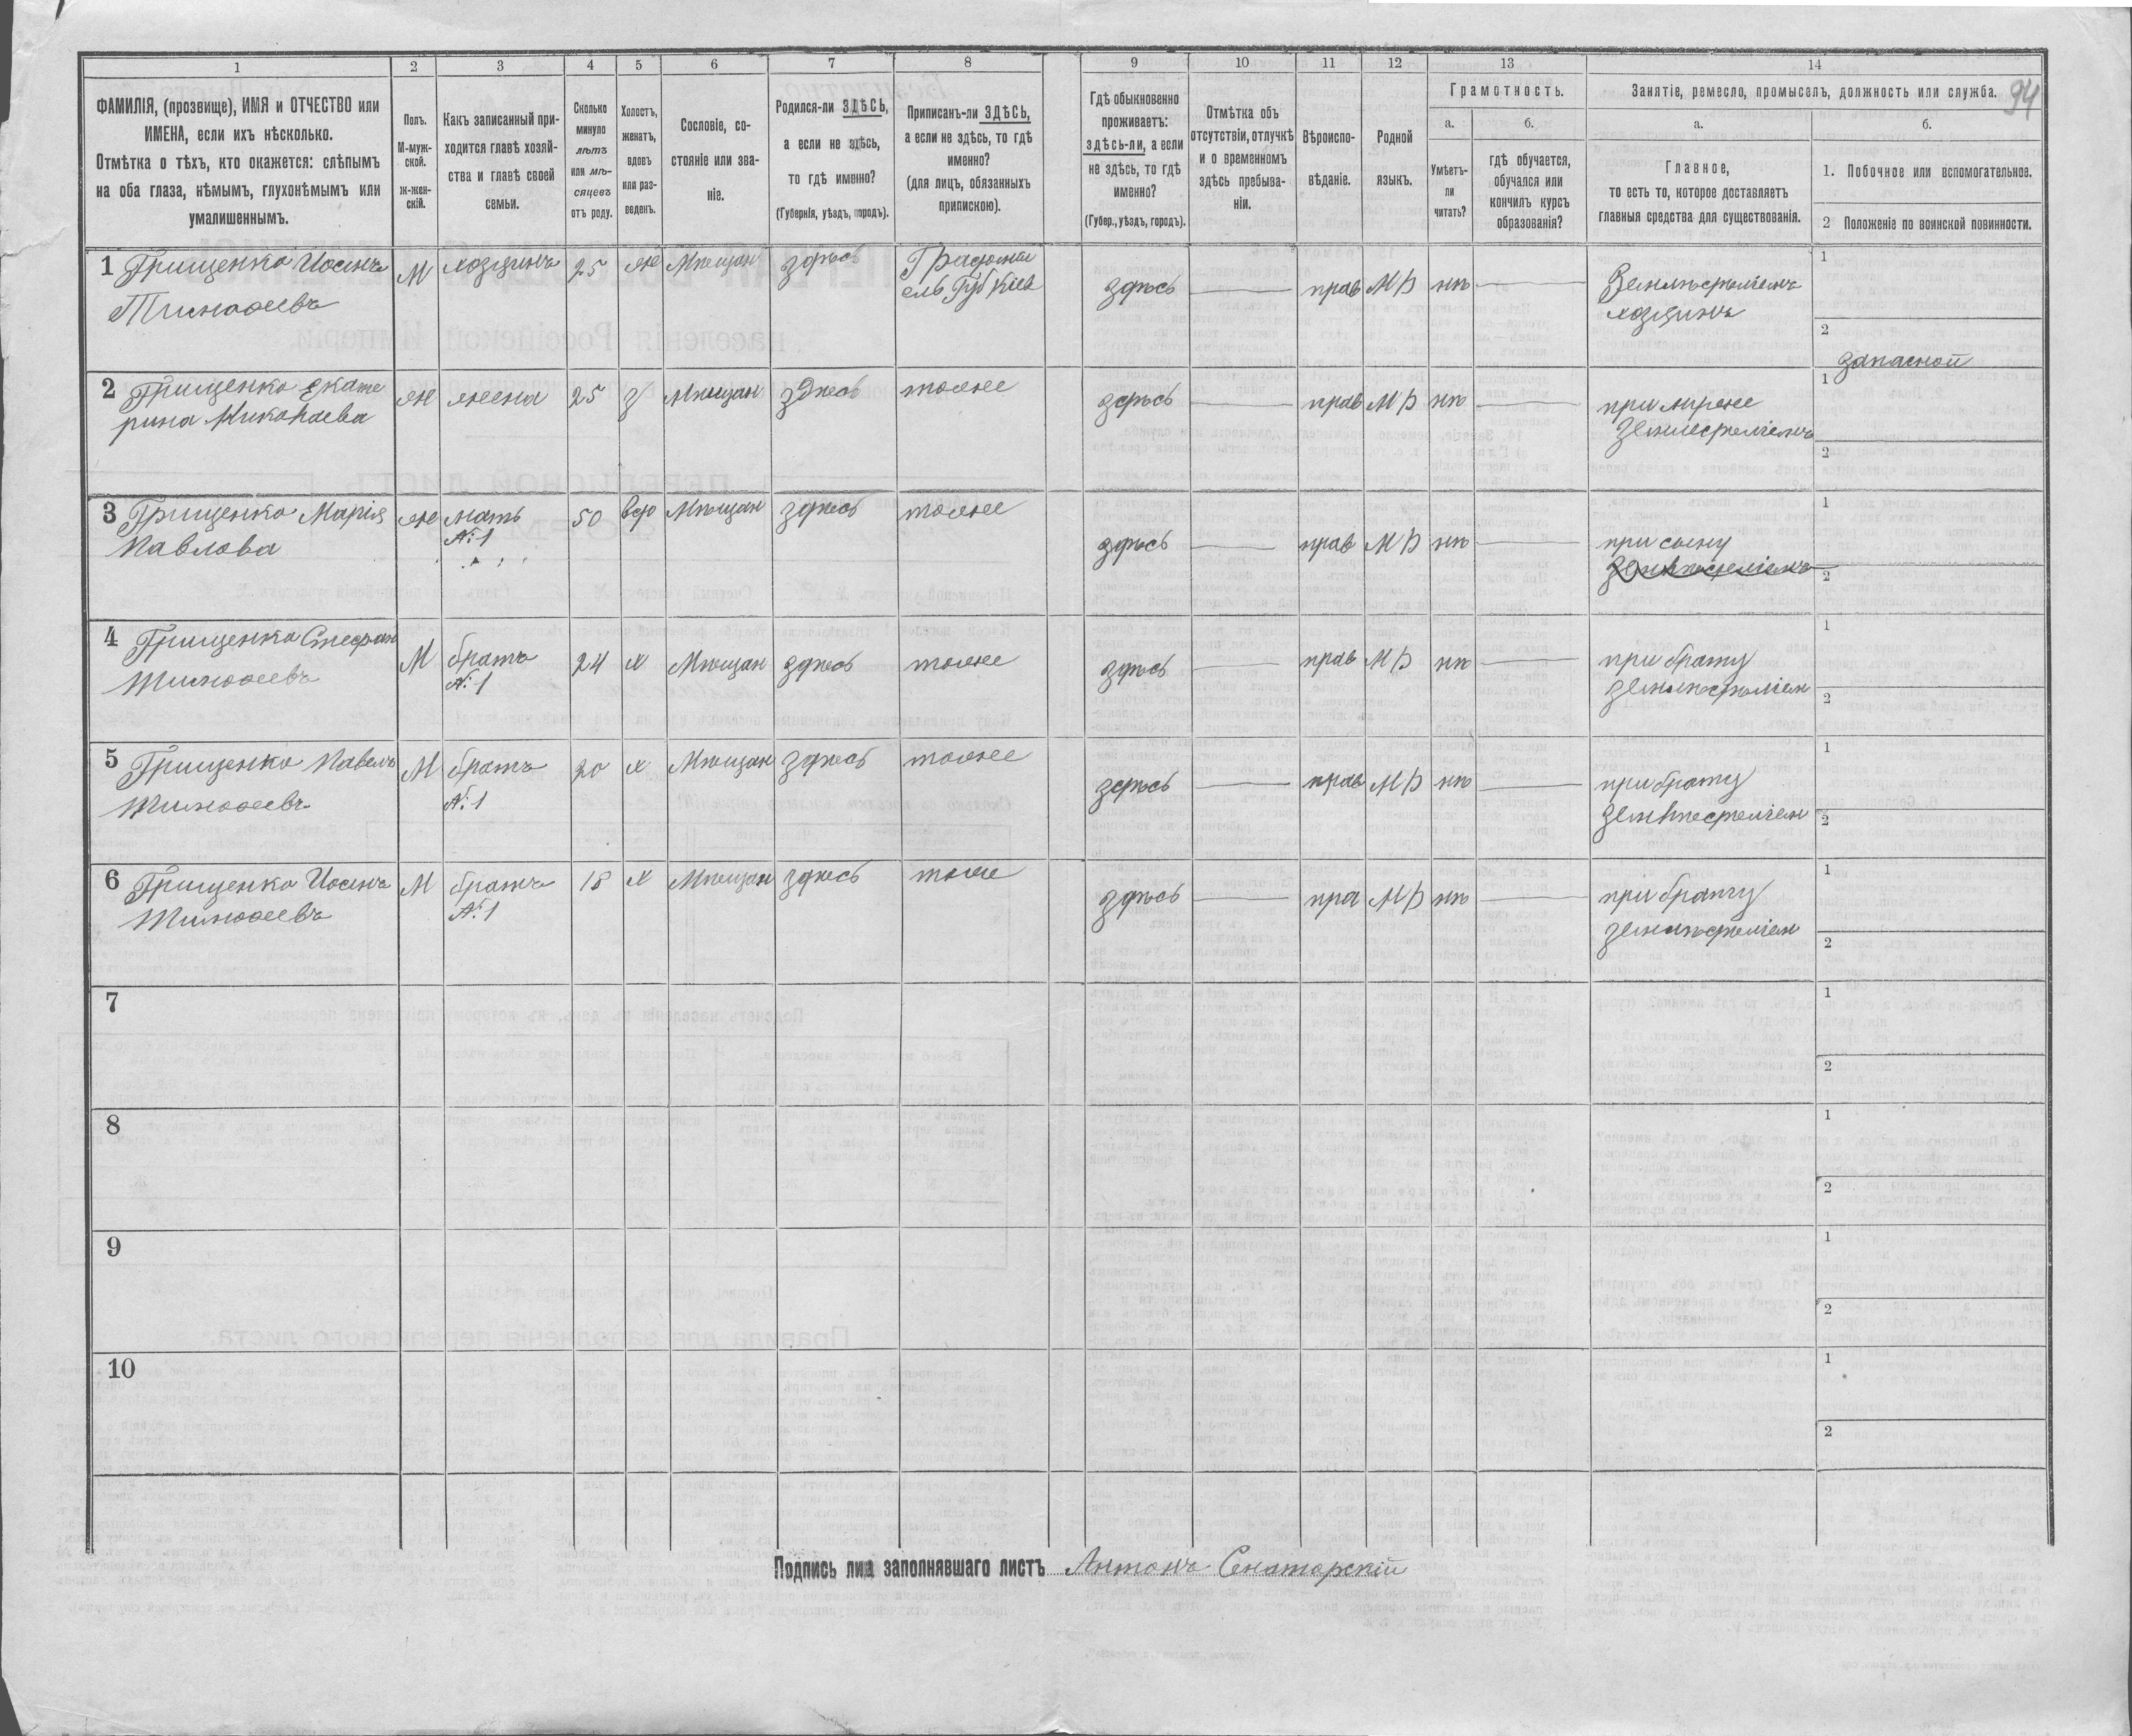 94
1 2 3 4 5 6 7 8 9 10 11 12 13 14
ФАМИЛІЯ, (прозвище), ИМЯ и ОТЧЕСТВО или
ИМЕНА, если ихъ нѣсколько.
Отмѣтка о тѣхъ, кто окажется: слѣпымъ
на оба глаза, нѣмымъ, глухонѣмымъ или
умалишеннымъ.
Полъ.
М-муж-
ской.
ж-жен-
скій.
Какъ записанный при-
ходится главѣ хозяй-
ства и главѣ своей
семьи.
Сколько
минуло
лѣтъ
или мѣ-
сяцевъ
отъ роду.
Холостъ,
женатъ,
вдовъ
или раз-
веденъ.
Сословіе, со-
стояніе или зва-
ніе.
Родился-ли ЗДѢСЬ,
а если не здѣсь,
то гдѣ именно?
(Губернія, уѣздъ, городъ).
Приписанъ-ли ЗДѢСЬ,
а если не здѣсь, то гдѣ
именно?
(для лицъ, обязанныхъ
припискою).
Гдѣ обыкновенно
проживаетъ:
здѣсь-ли, а если
не здѣсь, то гдѣ
именно?
(Губер., уѣздъ, городъ).
Отмѣтка объ
отсутствіи, отлучкѣ
и о временномъ
здѣсь пребыва-
ніи.
Вѣроиспо-
вѣданіе.
Родной
языкъ.
Грамотность.
а.
Умѣетъ-
ли
читать?
б.
гдѣ обучается,
обучался или
кончилъ курсъ
образованія?
Занятіе, ремесло, промыселъ, должность или служба.
а.
Главное,
то есть то, которое доставляетъ
главныя средства для существованія.
б.
1. Побочное или вспомогательное.
2 Положеніе по воинской повинности.
1 Грищенко Иосипъ М хозяинъ 25 ж Мѣщан здѣсь
Тимофеевъ
здѣсь — прав МР нѣ —
хозяинъ
1
2 запасной
2 Грищенко Екате ж жена 25 з Мѣщан здѣсь тоже здѣсь — прав МР нѣ —
рина Николаева
1
2
3 Грищенко Марія ж мать 50 вдо Мѣщан здѣсь тоже здѣсь — прав МР нѣ — при сыну
Павлова №1
1
2
4 Грищенко Стефан М братъ 24 х Мѣщан здѣсь тоже здѣсь — прав МР нѣ — при брату
Тимофеевъ №1 землѣдѣліем
1
2
5 Грищенко Павелъ М братъ 20 х Мѣщан здѣсь тоже здѣсь — прав МР нѣ — при брату
Тимофеевъ №1 землѣдѣліем
1
2
6 Грищенко Иосипъ М братъ 18 х Мѣщан здѣсь тоже здѣсь — пра МР нѣ — при брату
Тимофеевъ №1 землѣдѣліем
1
2
7 1
2
8 1
2
9 1
2
10 1
2
Подпись лица заполнявшаго листъ Антонъ Сенаторскій